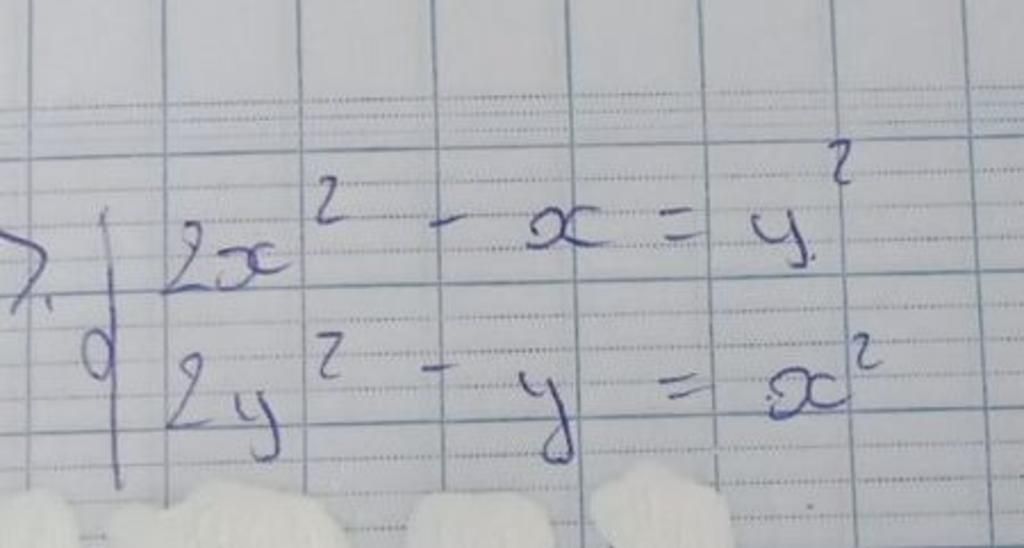 2x² - x = y²
2y² - y = x²